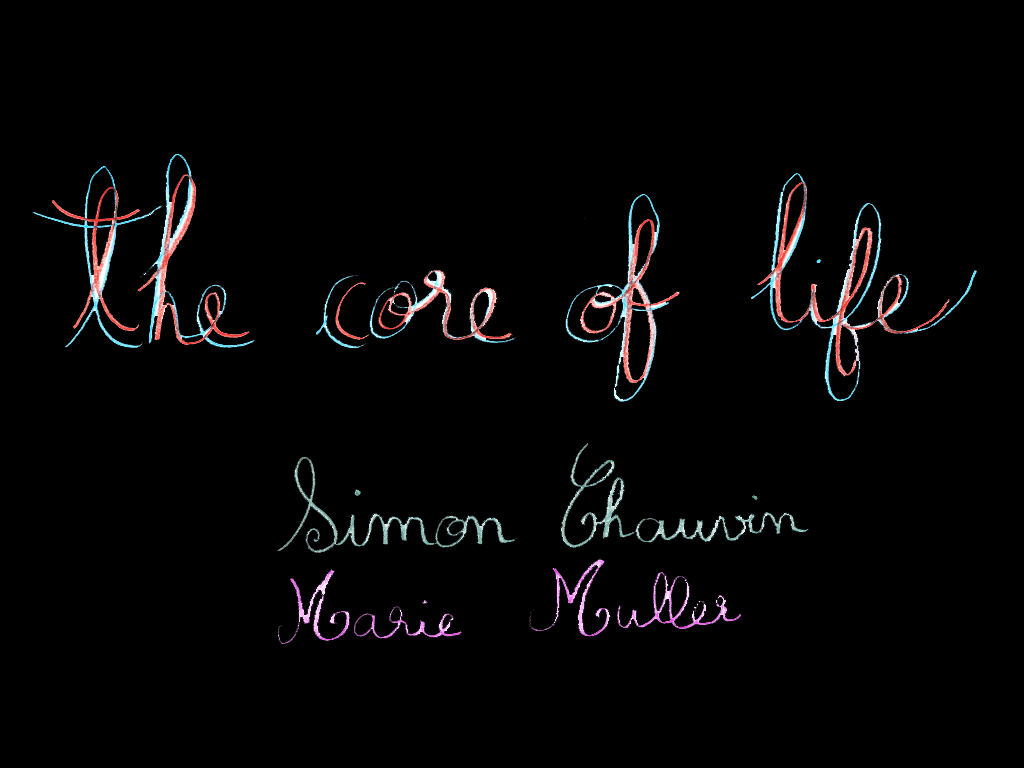 the core of life
Simon Chauvin
Marie Muller